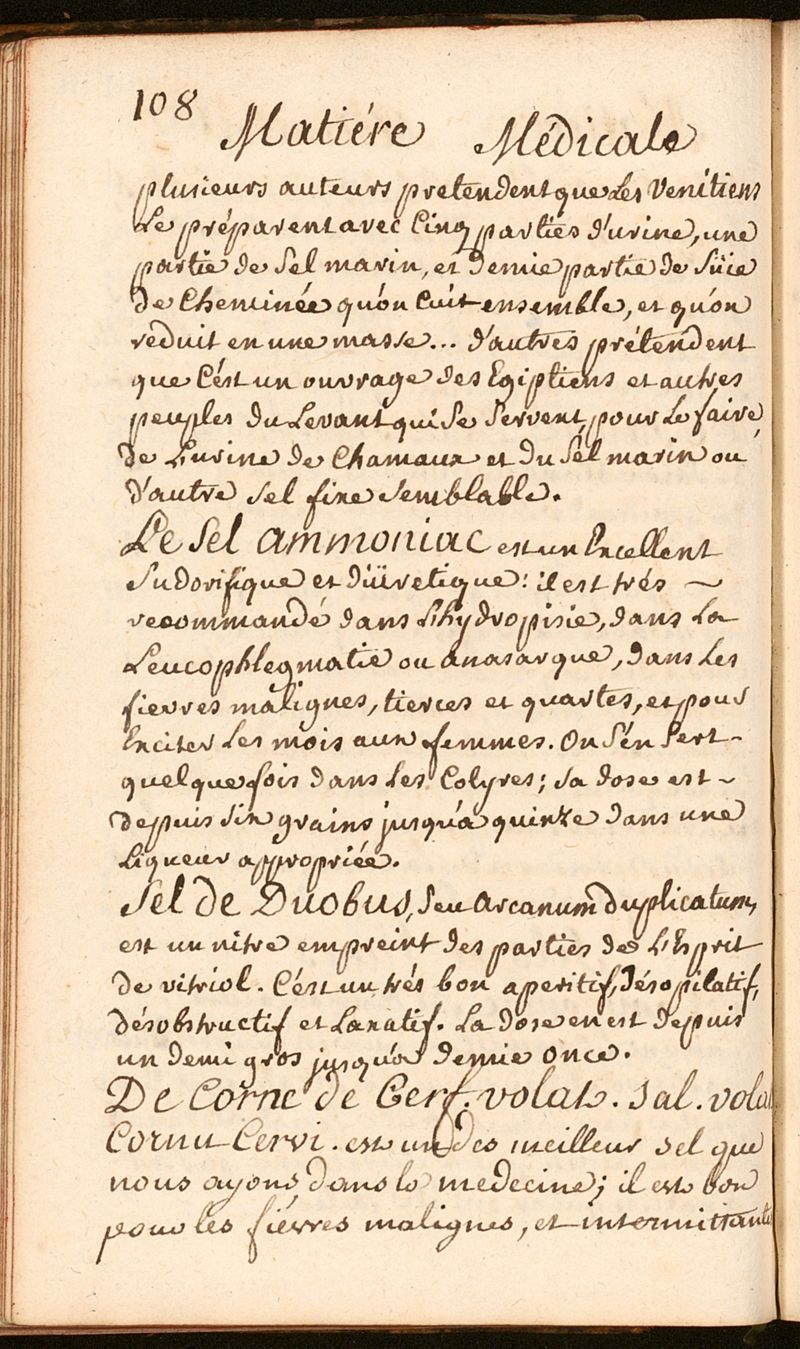 108
Matiére Médicale
plusieurs auteurs pretendent que Les Venitiens
Le préparent avec Cinq parties d'urine, une
partie de Sel marin, et demie partie de Süie
de Cheminée qu'on Cuit ensemble, et qu'on
reduit en une masse... d'autres prétendent
que C'est un ouvrage des Egiptiens et autres
peuples du Levant qui Se Servent pour Le faire,
de L'urine de Chamaux et du Sel marin ou
d'autre Sel fixe Semblable.
Le Sel ammoniac est un Excellent
Sudorifique et diüretique: il est trés ~
recommandé dans L'hydropisie, dans La
Leucophlegmatie ou anasarque, dans Les
fievres malignes, tierces et quartes, et pour
Exciter Les mois aux femmes. On S'en Sert -
quelque fois dans Les Colyres; Sa dose est ~
depuis Six grains jusqu'a quinze dans une
Liqueur appropriée.
Sel de Duobus, Seu Arcanum duplicatum,
est un nitre empreint des parties de L'Esprit
de vitriol. C'est un trés bon aperitif, désopilatif,
désobstructif et Laxatif. La dose en est depuis
un demi gros jusqu'a demie once.
De Corne de Cerf. volat. Sal. volat
Cornu Cervi. est un des meilleur sel que
nous ayons dans la medecine; il est bon
pour les fiévres malignes, et intermittante